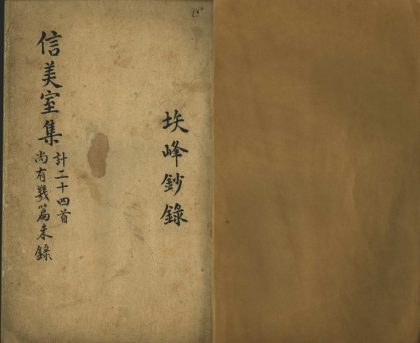 埃峰鈔錄
信美室集
計二十四首
尚有幾篇未錄